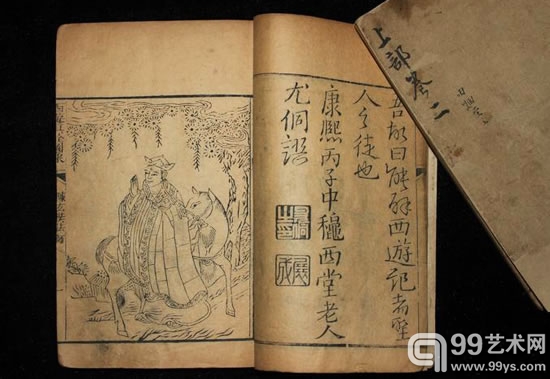 上部卷二
吾故曰能解西遊記者聖
人之徒也
康熙丙子中穐西堂老人
尤侗譔
99艺术网
www.99ys.com